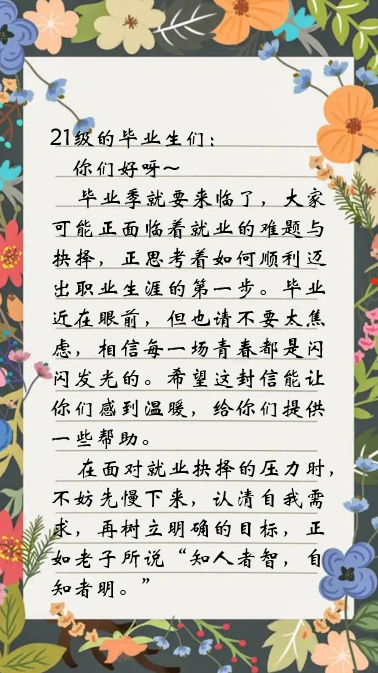 21级的毕业生们：
你们好呀～
毕业季就要来临了，大家
可能正面临着就业的难题与
抉择，正思考着如何顺利迈
出职业生涯的第一步。毕业
近在眼前，但也请不要太焦
虑，相信每一场青春都是闪
闪发光的。希望这封信能让
你们感到温暖，给你们提供
一些帮助。
在面对就业抉择的压力时，
不妨先慢下来，认清自我需
求，再树立明确的目标，正
如老子所说“知人者智，自
知者明。”